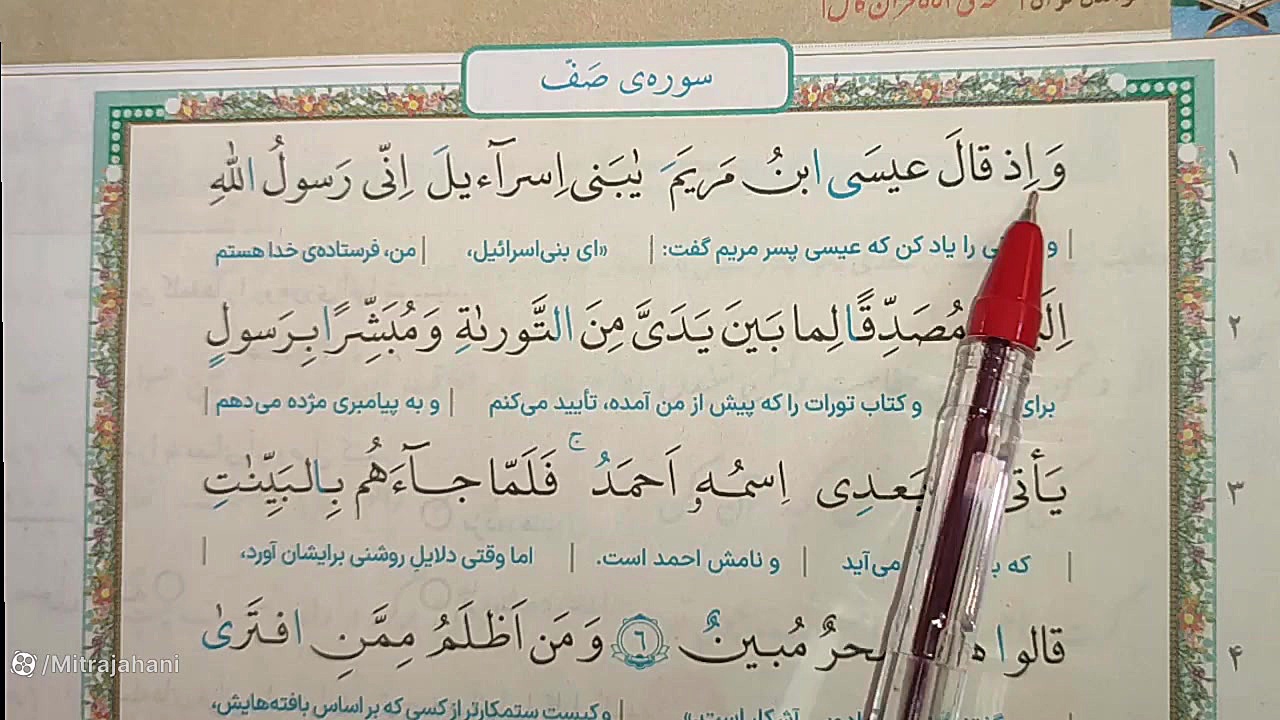 سوره‌ی صَفّ
۱
وَ اِذ قالَ عیسَی ابنُ مَریَمَ یٰبَنی اِسرآءیلَ اِنّی رَسولُ اللّٰهِ
را یاد کن که عیسی پسر مریم گفت: | «ای بنی‌اسرائیل، | من، فرستاده‌ی خدا هستم
۲
مُصَدِّقًا لِما بَینَ یَدَیَّ مِنَ التَّوریٰةِ وَ مُبَشِّرًا بِرَسولٍ
برای و کتاب تورات را که پیش از من آمده، تأیید می‌کنم | و به پیامبری مژده می‌دهم |
۳
یَأتی بَعدِی اِسمُهٗ اَحمَدُ ۚ فَلَمّا جآءَهُم بِالبَیِّنٰتِ
| که می‌آید | و نامش احمد است. | اما وقتی دلایلِ روشنی برایشان آورد، |
۴
قالوا مُبینٌ ﴿٦﴾ وَ مَن اَظلَمُ مِمَّنِ افتَرَیٰ
آشکار است.» | و کیست ستمکارتر از کسی که بر اساس بافته‌هایش،
/Mitrajahani